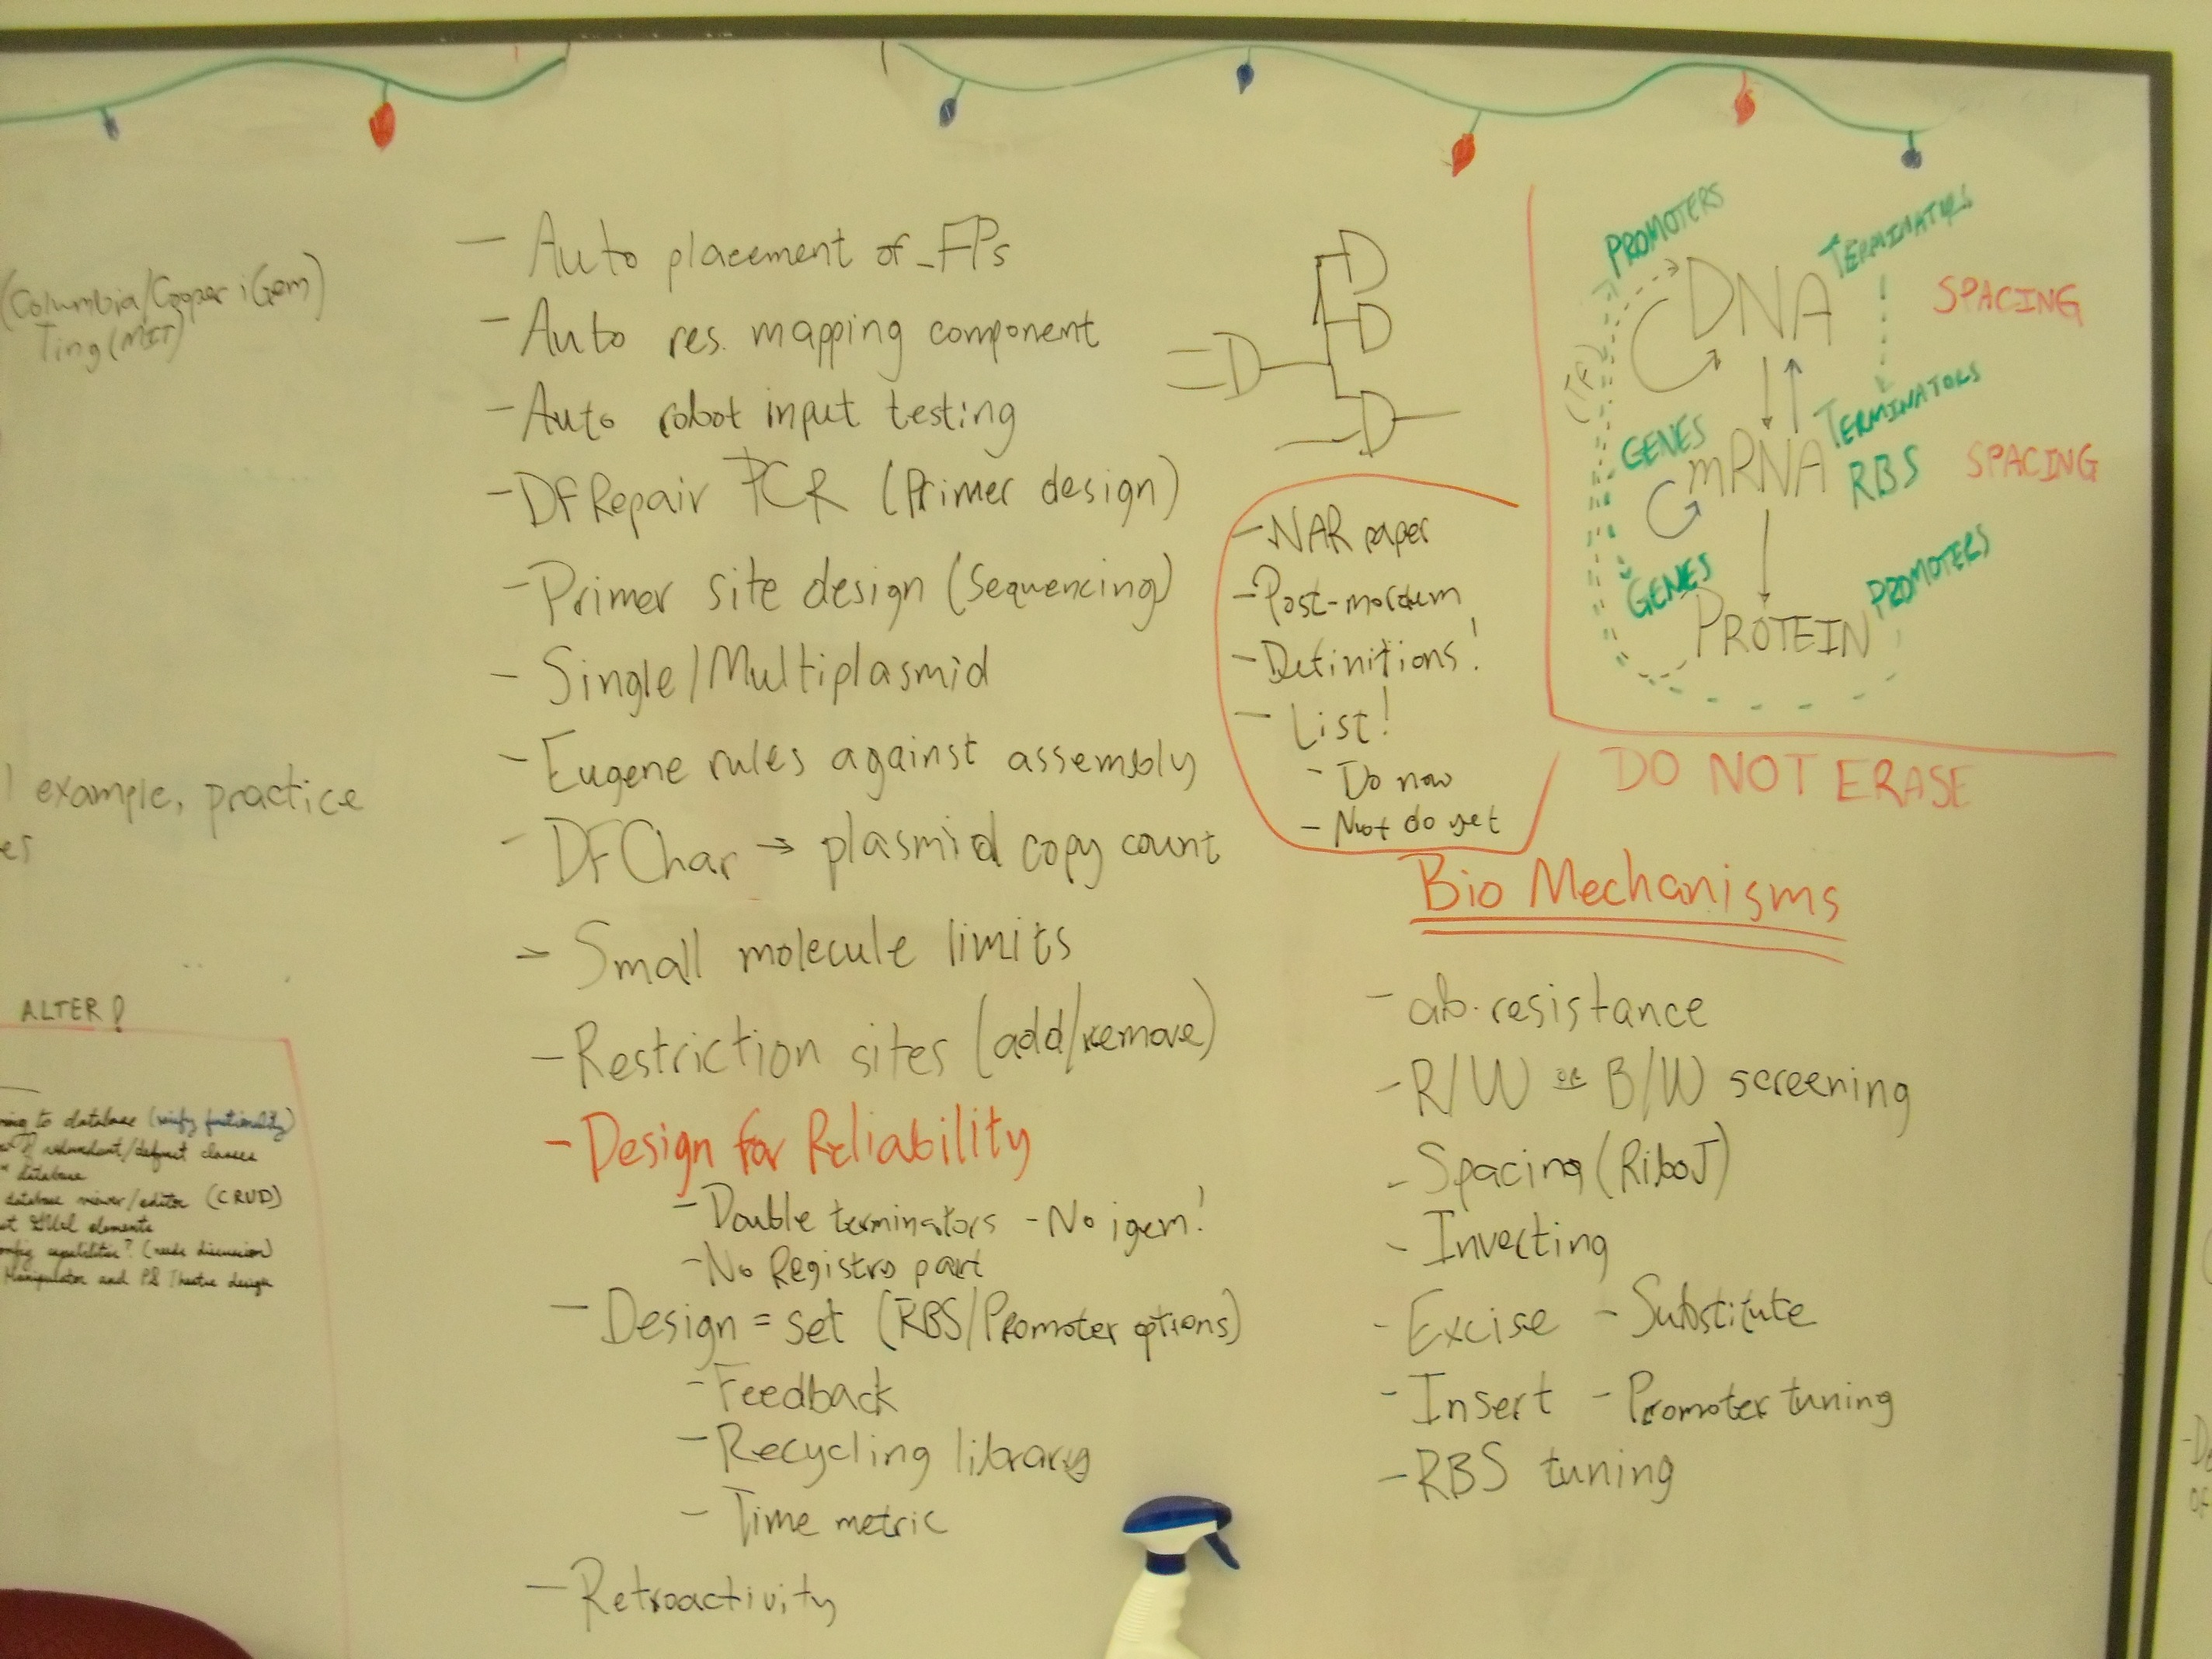 (Columbia/Cooper iGem)
Ting (MIT)
example, practice
es
ALTER!
ning to database (verify funtionality)
redundant/defunct classes
database
database viewer/editor (CRUD)
elements
config capabilities? (needs discussion)
Manipulator and Theatre design
- Auto placement of FPs
- Auto res. mapping component
- Auto robot input testing
- DFRepair PCR (Primer design)
- Primer site design (Sequencing)
- Single/Multiplasmid
- Eugene rules against assembly
- DFChar → plasmid copy count
- Small molecule limits
- Restriction sites (add/remove)
- Design for Reliability
- Double terminators - No igem!
- No Registry part
- Design = set (RBS/Promoter options)
- Feedback
- Recycling library
- Time metric
- Retroactivity
- NAR paper
- Post-mordum
- Definitions!
- List!
- Do now
- Not do yet
PROMOTERS
TERMINATORS
DNA
SPACING
(TF)
GENES
TERMINATORS
mRNA
RBS
SPACING
GENES
PROMOTERS
PROTEIN
DO NOT ERASE
Bio Mechanisms
- ab. resistance
- R/W or B/W screening
- Spacing (RiboJ)
- Inverting
- Excise - Substitute
- Insert - Promoter tuning
- RBS tuning